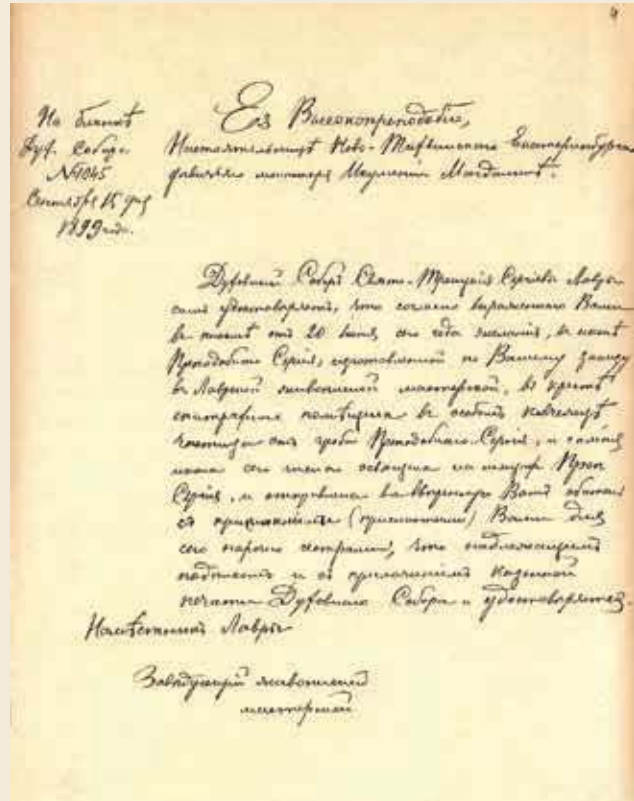 4
На бланкѣ
Дух. Собора
№ 1045
Сентября 15 дня
1899 года.
Ея Высокопреподобію,
Настоятельницѣ Ново-Тихвинскаго Екатеринбургскаго
дѣвичьяго монастыря Игуменіи Магдалинѣ.
Духовный Соборъ Свято-Троицкія Сергіевы Лавры
симъ удостовѣряетъ, что согласно выраженному Вами
въ письмѣ отъ 20 сего года желанію, въ иконѣ
Преподобнаго Сергія, изготовленной по Вашему заказу
въ Лаврской живописной мастерской, въ крестѣ
помѣщена въ особомъ ковчежцѣ
частица отъ гроба Преподобнаго Сергія, и самая
икона сего числа освящена на мощахъ Преп.
Сергія, и отправлена во ввѣренную Вамъ обитель
съ (присланными) Вами для
сего нарочно сестрами, что надлежащимъ
подписомъ и съ приложеніемъ казенной
печати Духовнаго Собора и удостовѣряется.
Намѣстникъ Лавры
Завѣдующій живописной
мастерской